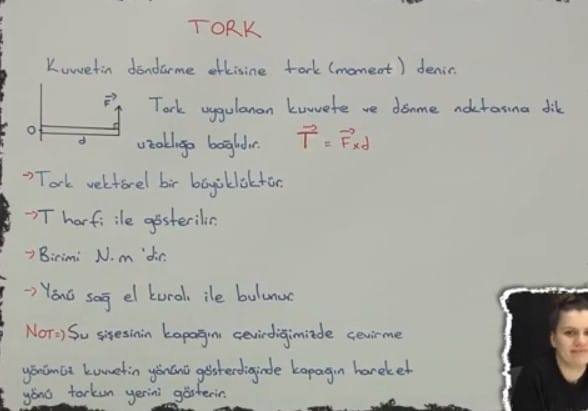 TORK
Kuvvetin döndürme etkisine tork (moment) denir.
F
O
d
Tork uygulanan kuvvete ve dönme noktasına dik
uzaklığa bağlıdır. T = F x d
→ Tork vektörel bir büyüklüktür.
→ T harfi ile gösterilir.
→ Birimi N.m 'dir.
→ Yönü sağ el kuralı ile bulunur
NOT=) Su şişesinin kapağını çevirdiğimizde çevirme
yönümüz kuvvetin yönünü gösterdiğinde kapağın hareket
yönü torkun yerini gösterir.